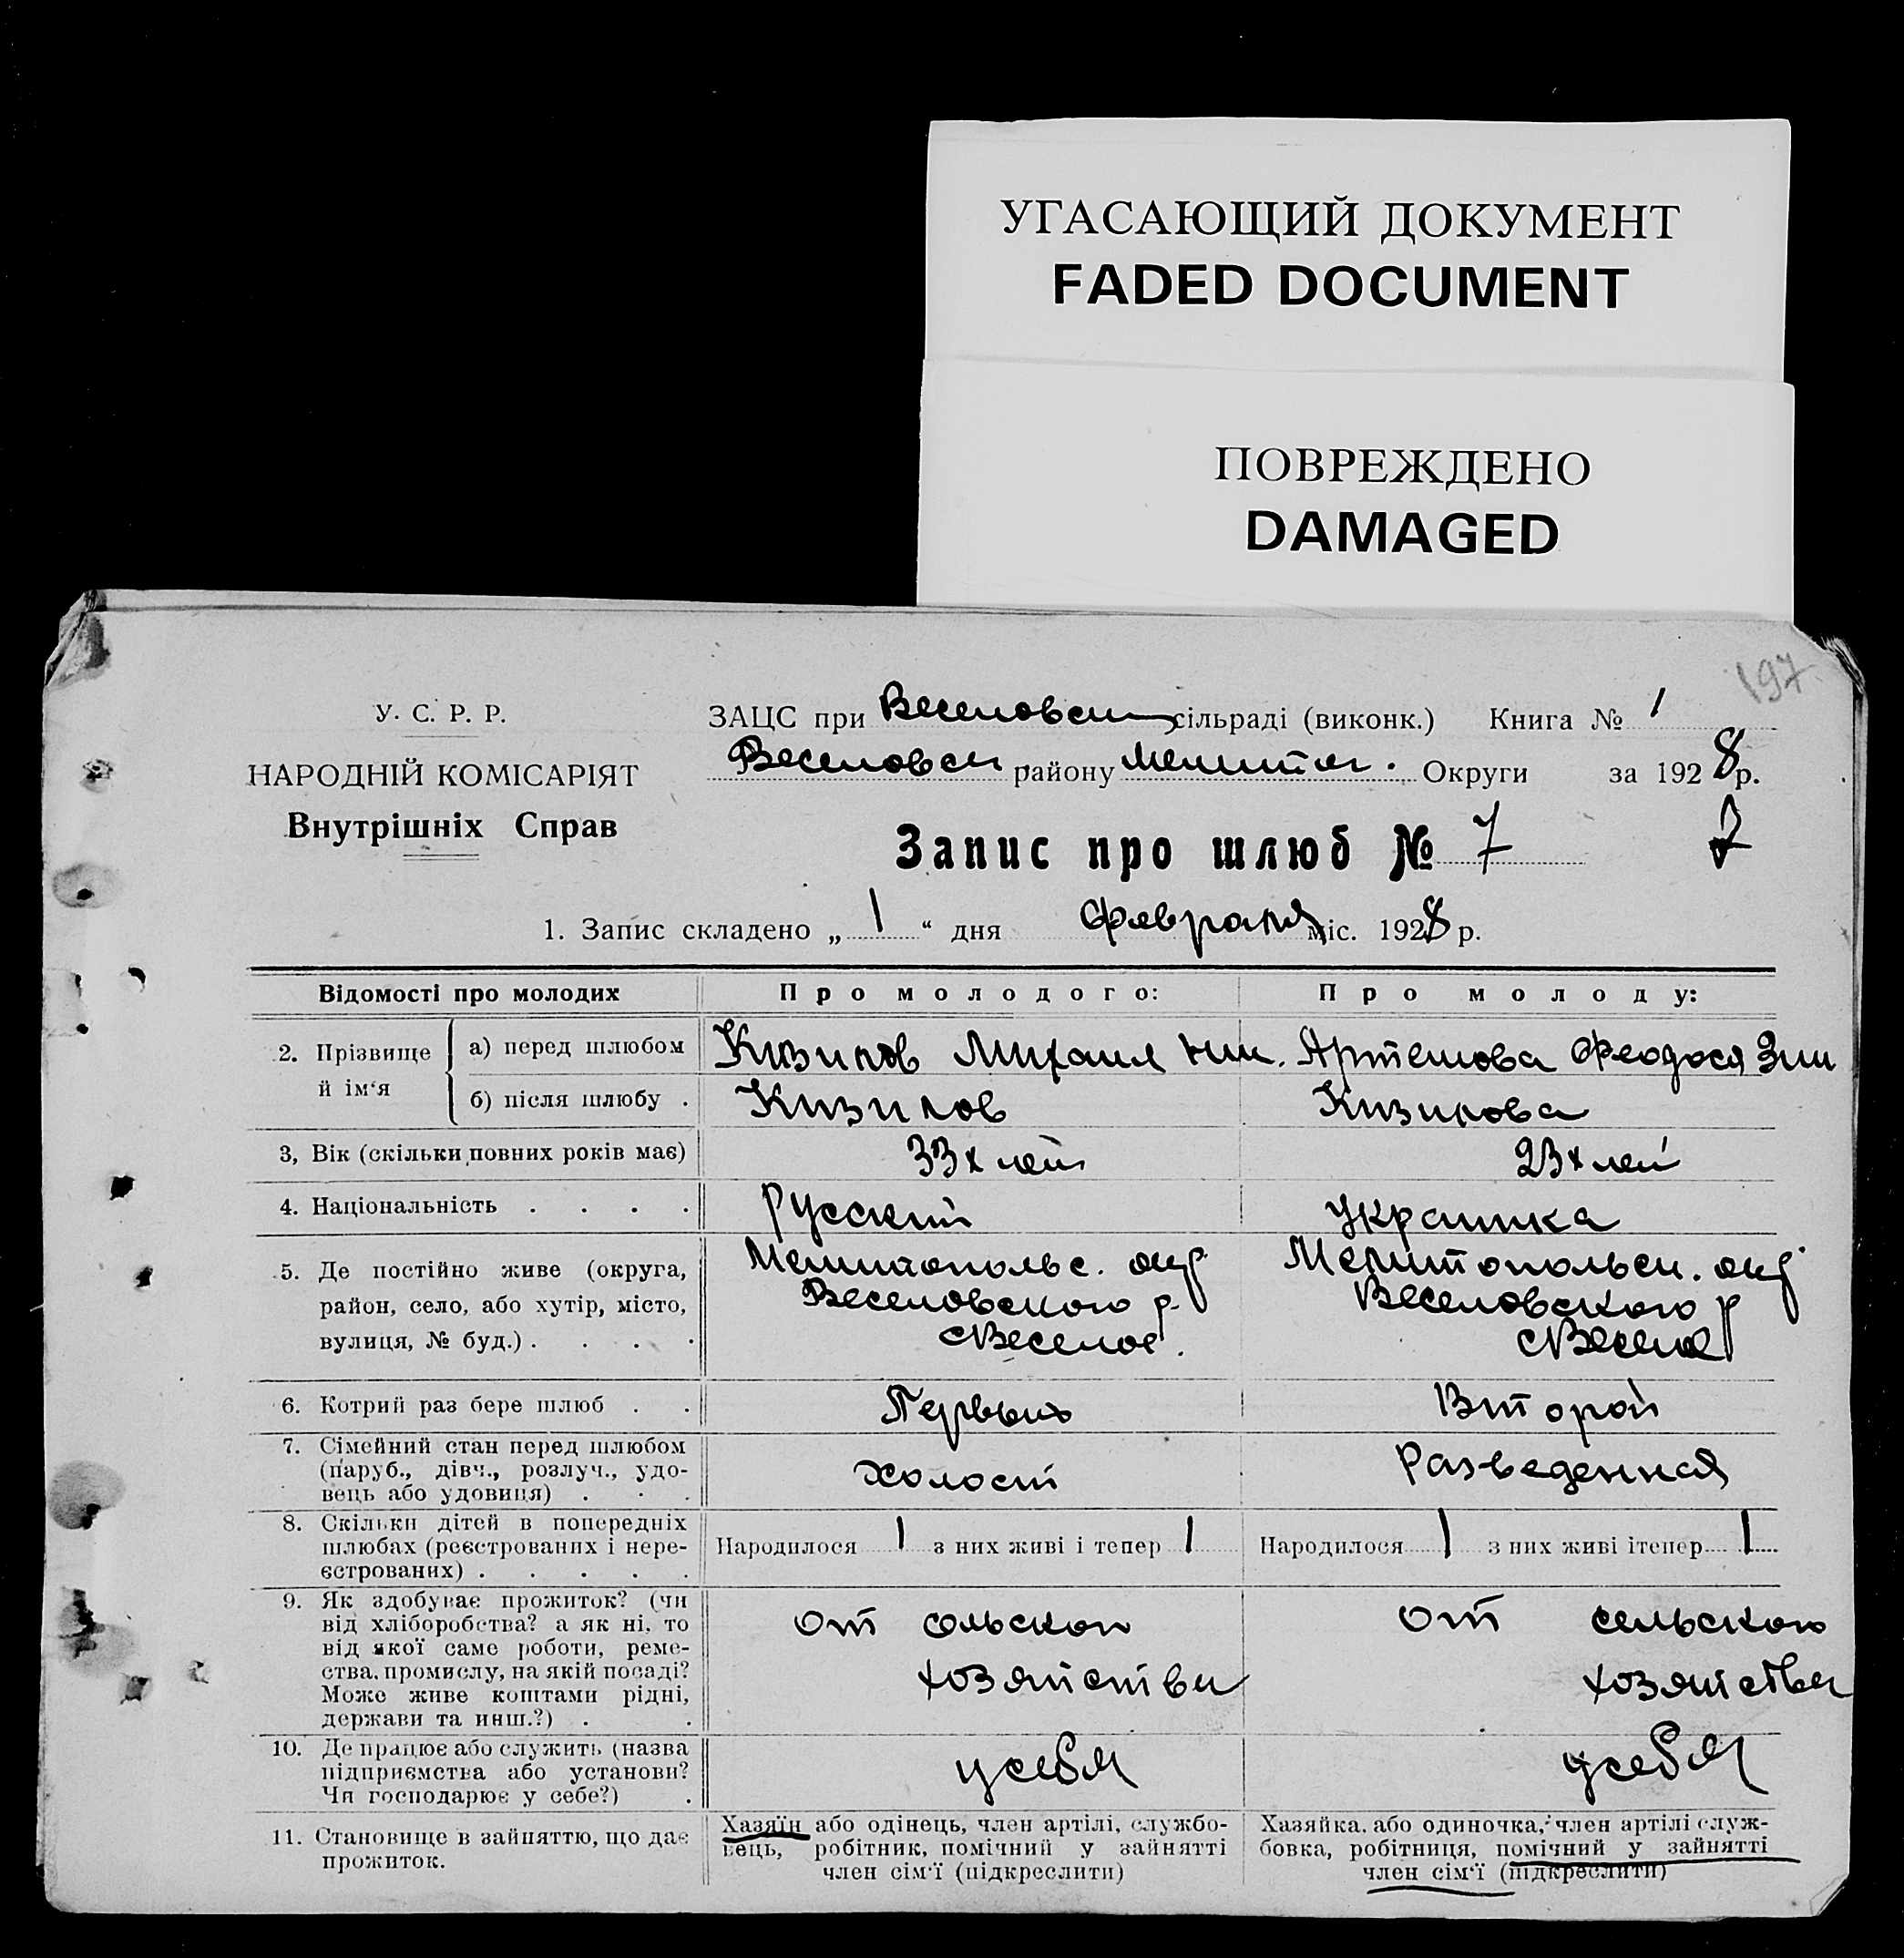 УГАСАЮЩИЙ ДОКУМЕНТ
FADED DOCUMENT
ПОВРЕЖДЕНО
DAMAGED
197
У. С. Р. Р.
НАРОДНІЙ КОМІСАРІЯТ
Внутрішніх Справ
ЗАЦС при Веселовском сільраді (виконк.) Книга № 1
Веселовск району Мелитоп. Округи за 1928 р.
Запис про шлюб № 7 7
1. Запис складено „ 1 “ дня Февраля міс. 1928 р.
Відомості про молодих Про молодого: Про молоду:
2. Прізвище й ім‘я
а) перед шлюбом Кизилов Михаил Ник. Артемова Феодося Зин
б) після шлюбу . Кизилов Кизилова
3, Вік (скільки повних років має) 33х лет 23х лет
4. Національність . . . . Русский Украинка
5. Де постійно живе (округа,
район, село, або хутір, місто,
вулиця, № буд.) . . . .
Мелитопольс. окр
Веселовского р.
с Веселое.
Мелитопольск. окр
Веселовского р
с Веселое
6. Котрий раз бере шлюб . . Первый Второй
7. Сімейний стан перед шлюбом
(паруб., дівч., розлуч., удо-
вець або удовиця) . . .
Холост Разведенная
8. Скільки дітей в попередніх
шлюбах (реєстрованих і нере-
єстрованих) . . . . .
Народилося 1 з них живі і тепер 1 Народилося 1 з них живі ітепер 1
9. Як здобуває прожиток? (чи
від хліборобства? а як ні, то
від якої саме роботи, реме-
ства, промислу, на якій посаді?
Може живе коштами рідні,
держави та инш.?) . .
От сельского
хозяйства
От сельского
хозяйства
10. Де працює або служить (назва
підприємства або установи?
Чи господарює у себе?) .
у себя у себя
11. Становище в зайняттю, що дає
прожиток.
Хазяїн або одінець, член артілі, службо-
вець, робітник, помічний у зайнятті
член сім‘ї (підкреслити)
Хазяйка, або одиночка, член артілі служ-
бовка, робітниця, помічний у зайнятті
член сім‘ї (підкреслити)